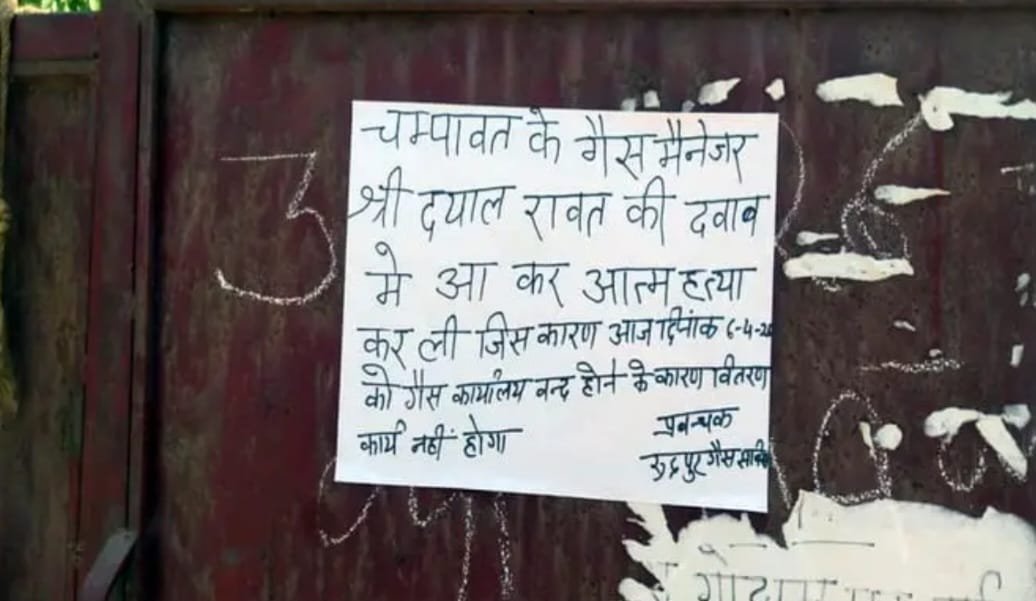 चम्पावत के गैस मैनेजर
श्री दयाल रावत की दवाब
मे आ कर आत्महत्या
कर ली जिस कारण आज दिनांक 6-4-2
को गैस कार्यालय बन्द होने के कारण वितरण
कार्य नहीं होगा
प्रबन्धक
रुद्रपुर गैस सर्विस